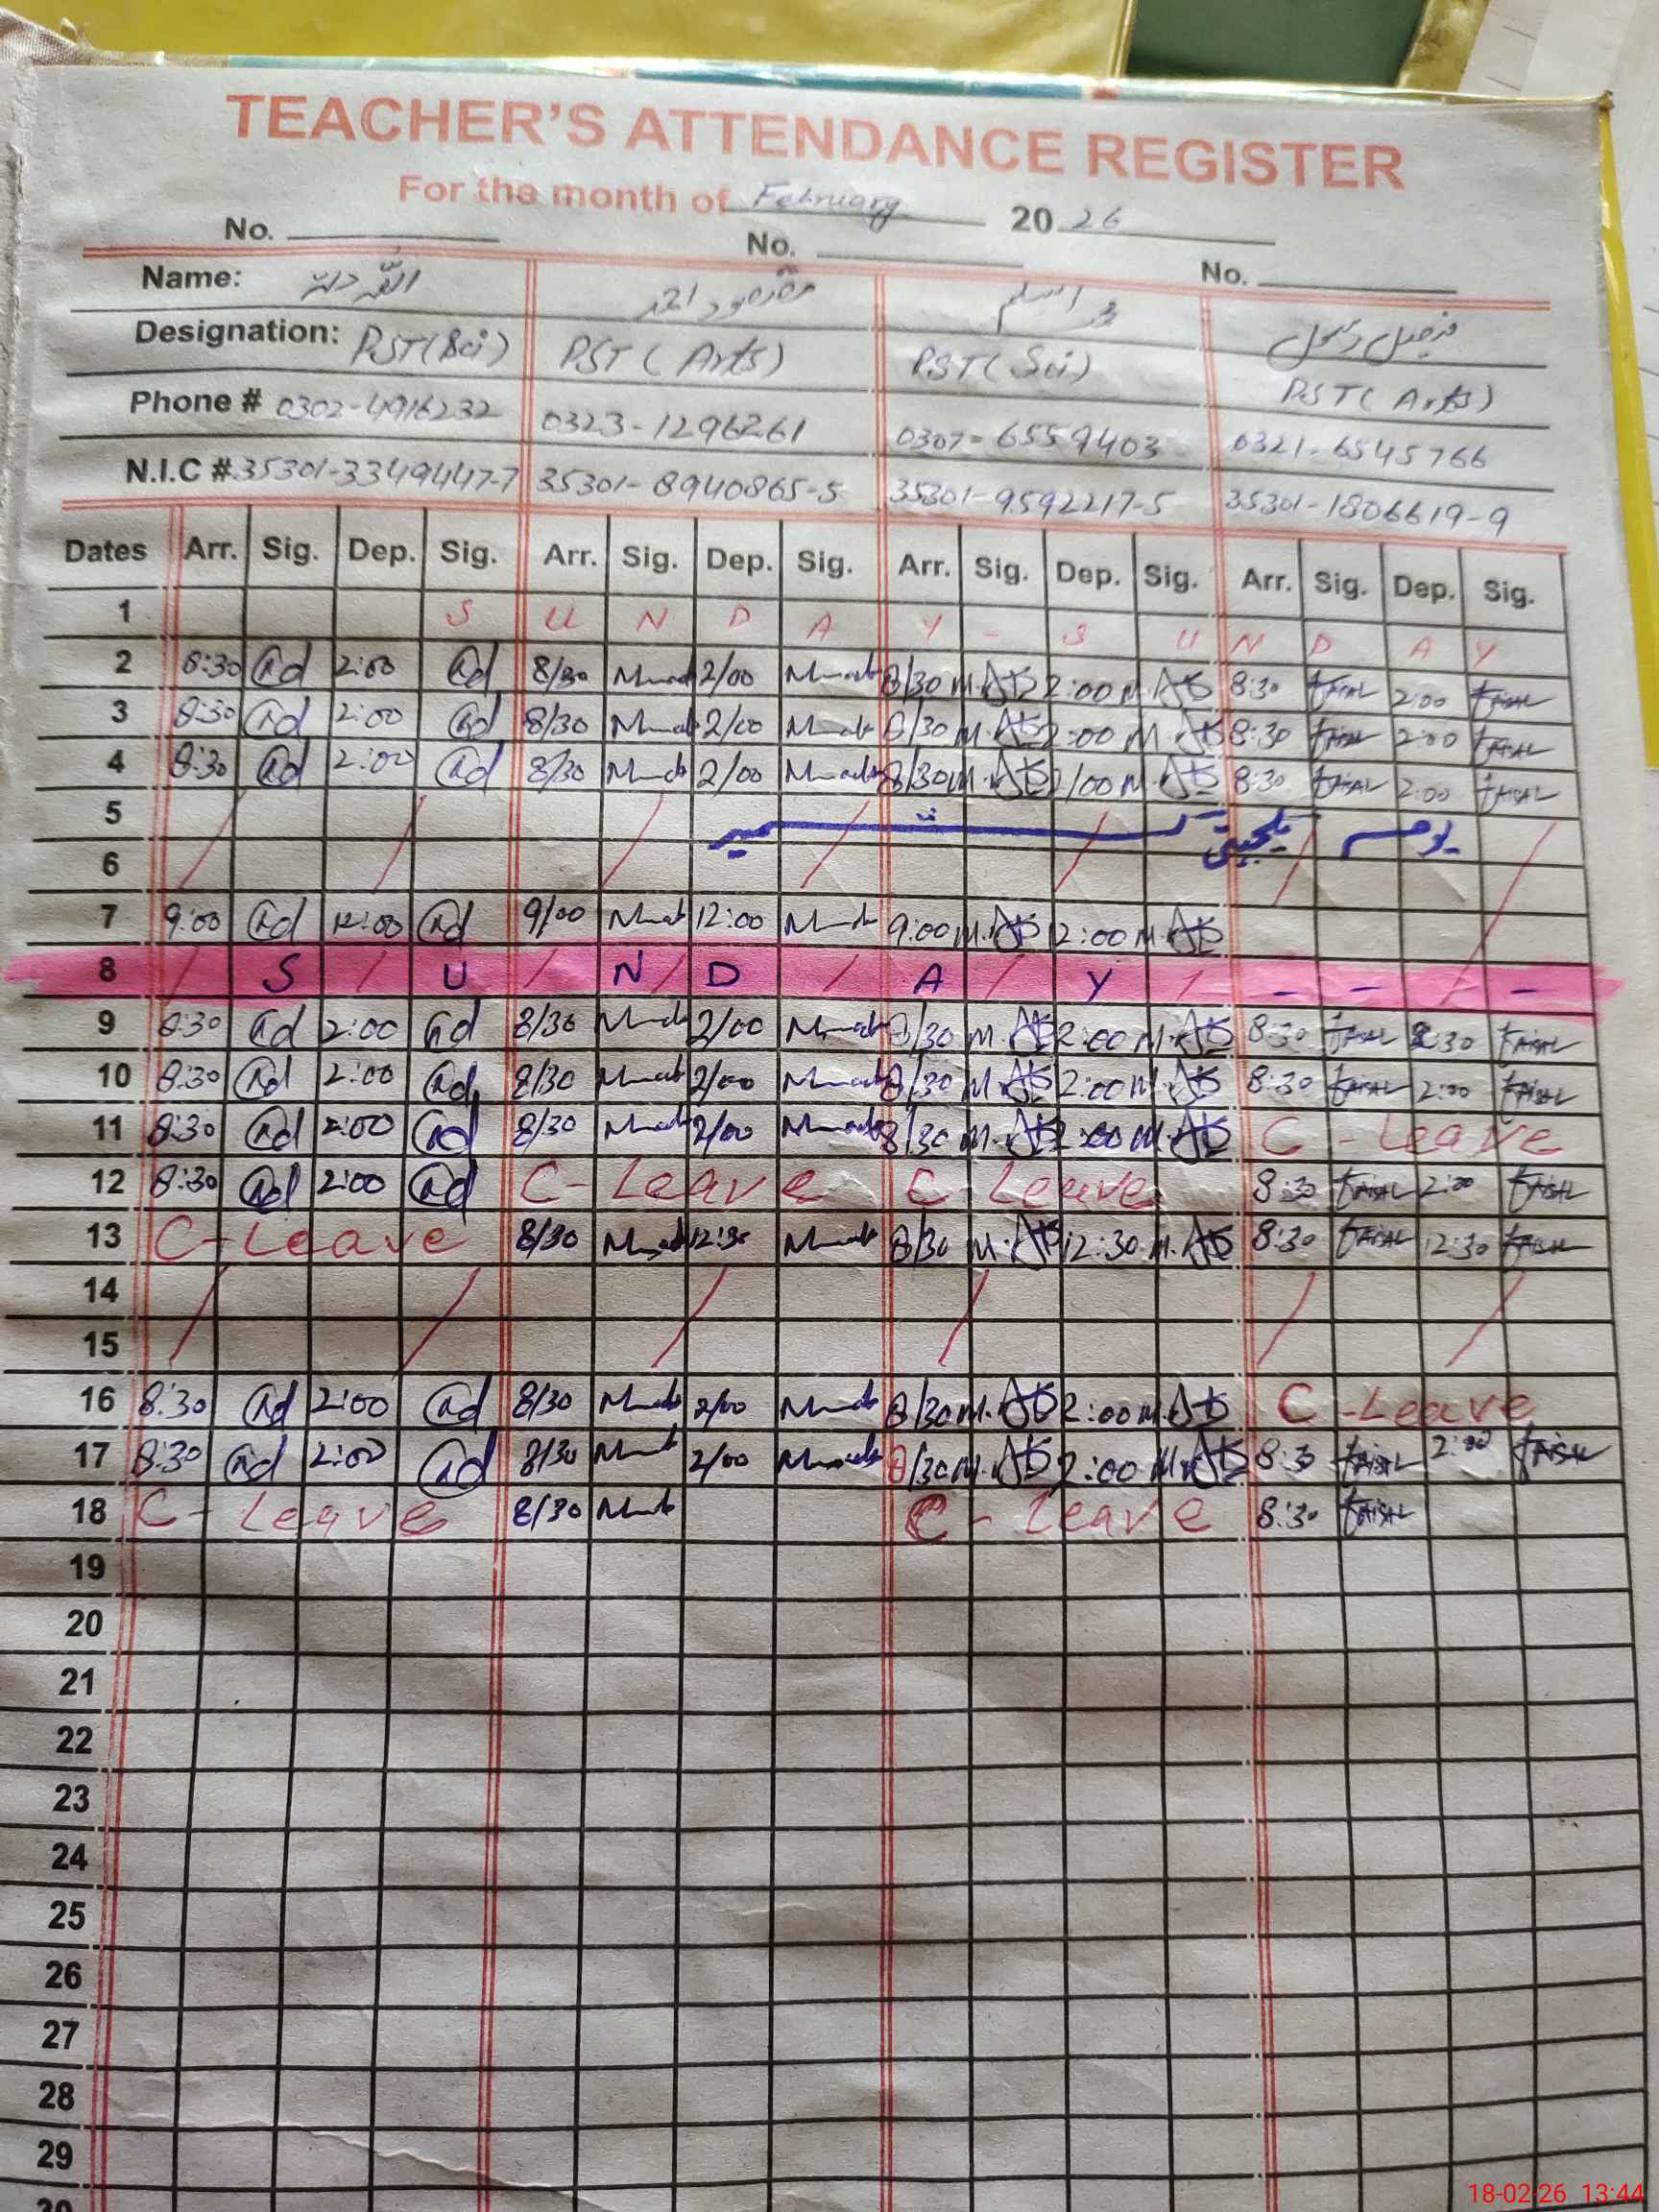 TEACHER'S ATTENDANCE REGISTER
For the month of February 20 26
No. No. No.
Name: مقصود احمد محمد اسلم فیصل رسول
Designation: PST(Sci) PST (Arts) PST (Sci) PST (Arts)
Phone # 0302-4916232 0323-1296261 0307-6559403 0321-6545766
N.I.C # 35301-3349447-7 35301-8940865-5 35301-9592217-5 35301-1806619-9
Dates Arr. Sig. Dep. Sig. Arr. Sig. Dep. Sig. Arr. Sig. Dep. Sig. Arr. Sig. Dep. Sig.
1 S U N D A Y - S U N D A Y
2 8:30 2:00 8/30 2/00 8/30 2:00 8:30 Faisal 2:00 Faisal
3 8:30 2:00 8/30 2/00 8/30 2:00 8:30 Faisal 2:00 Faisal
4 8:30 2:00 8/30 2/00 8/30 2/00 8:30 Faisal 2:00 Faisal
5 یوم یکجہتی کشمیر
6
7 9:00 12:00 9/00 12:00 9:00 12:00
8 S U N D A Y - - -
9 8:30 2:00 8/30 2/00 8/30 2:00 8:30 Faisal Faisal
10 8:30 2:00 8/30 2/00 8/30 2:00 8:30 Faisal 2:00 Faisal
11 8:30 2:00 8/30 2/00 8/30 2:00 C - Leave
12 8:30 2:00 C - Leave C - Leave 8:30 Faisal 2:00 Faisal
13 C - Leave 8/30 12:30 8/30 12:30 8:30 Faisal 12:30 Faisal
14
15
16 8:30 2:00 8/30 2/00 8/30 2:00 C - Leave
17 8:30 2:00 8/30 2/00 8/30 2:00 8:30 Faisal 2:00 Faisal
18 C - Leave 8/30 C - Leave 8:30 Faisal
19
20
21
22
23
24
25
26
27
28
29
30
18-02-26 13:44